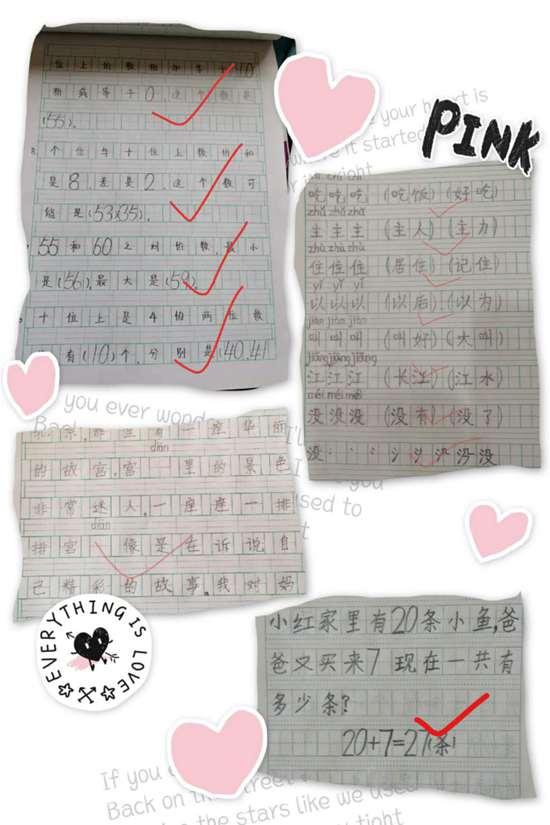 位上的数相加等于10
相减等于0,这个数是
(55)。
个位与十位上数的和
是8,差是2,这个数可
能是(53)(35)。
55和60之间的数最小
是(56),最大是(59)。
十位上是4的两位数
有(10)个,分别是(40.41
your heart is
it started
PINK
吃吃吃(吃饭)(好吃)
zhǔ zhǔ zhǔ
主主主(主人)(主力)
zhù zhù zhù
住住住(居住)(记住)
yǐ yǐ yǐ
以以以(以后)(以为)
jiào jiào jiào
叫叫叫(叫好)(大叫)
jiāng jiāng jiāng
江江江(长江)(江水)
méi méi méi
没没没(没有)(没了)
没
you ever wonde
Back
used to
一座华丽
diàn
的故宫,宫里的景色
非常迷人,一座座一排
diàn
排宫像是在诉说自
己精彩的故事。我对妈
EVERYTHING IS LOVE
小红家里有20条小鱼,爸
爸又买来7现在一共有
多少条?
20+7=27(条)
If you
Back on the street
the stars like we used
tight